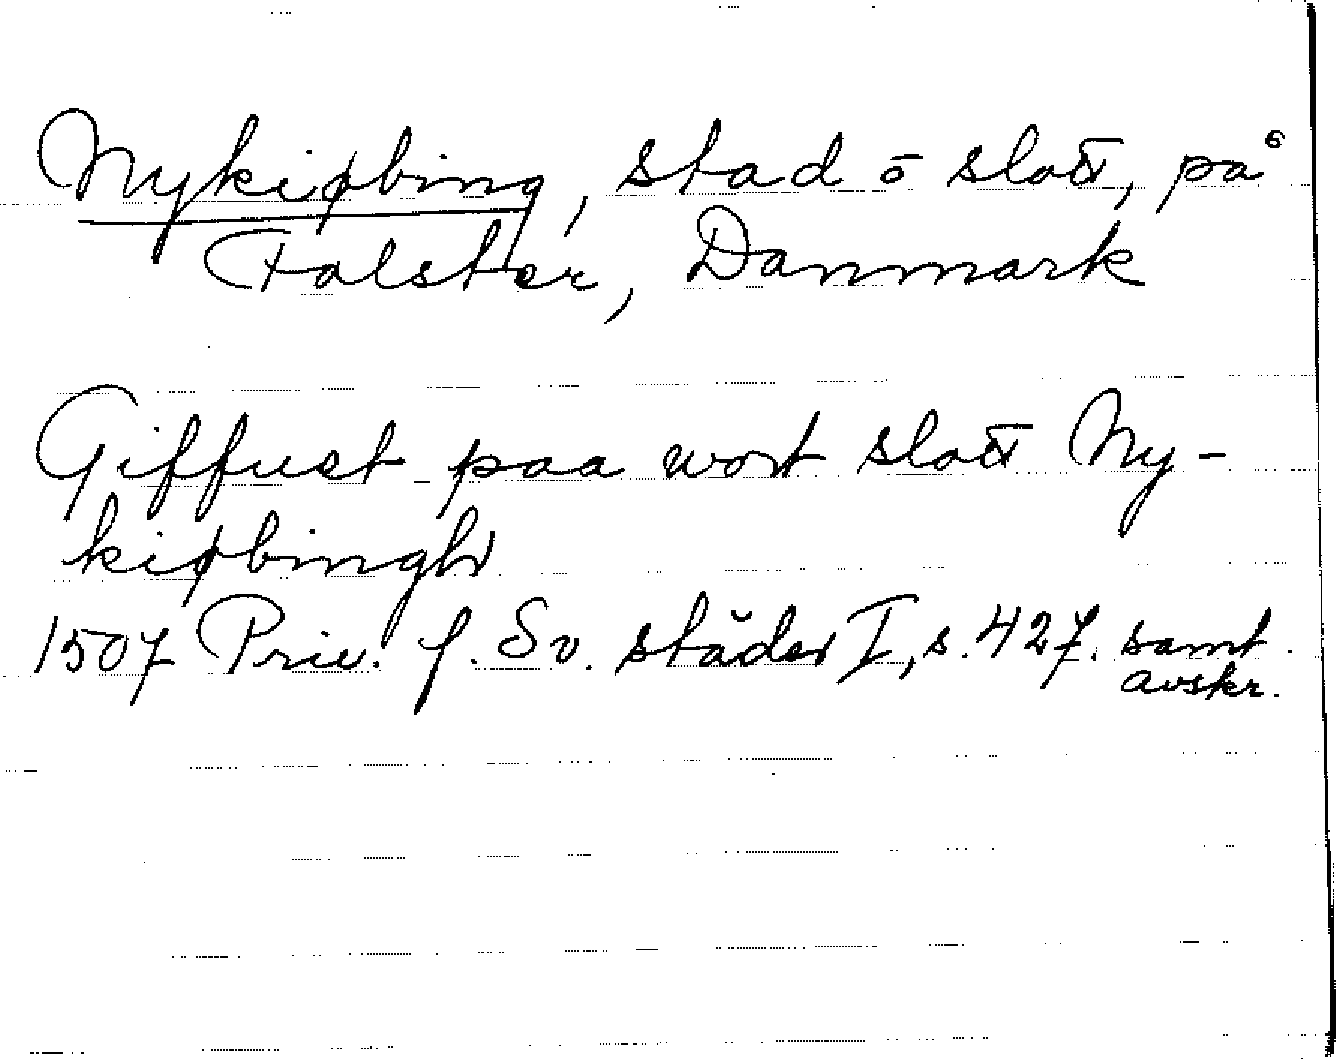 Nykiøbing, stad o slott, på
Falster, Danmark
Giffuet paa wort slott Ny-
kiøbingh
1507 Priv. f. Sv. städer I, s. 427. samt
avskr.